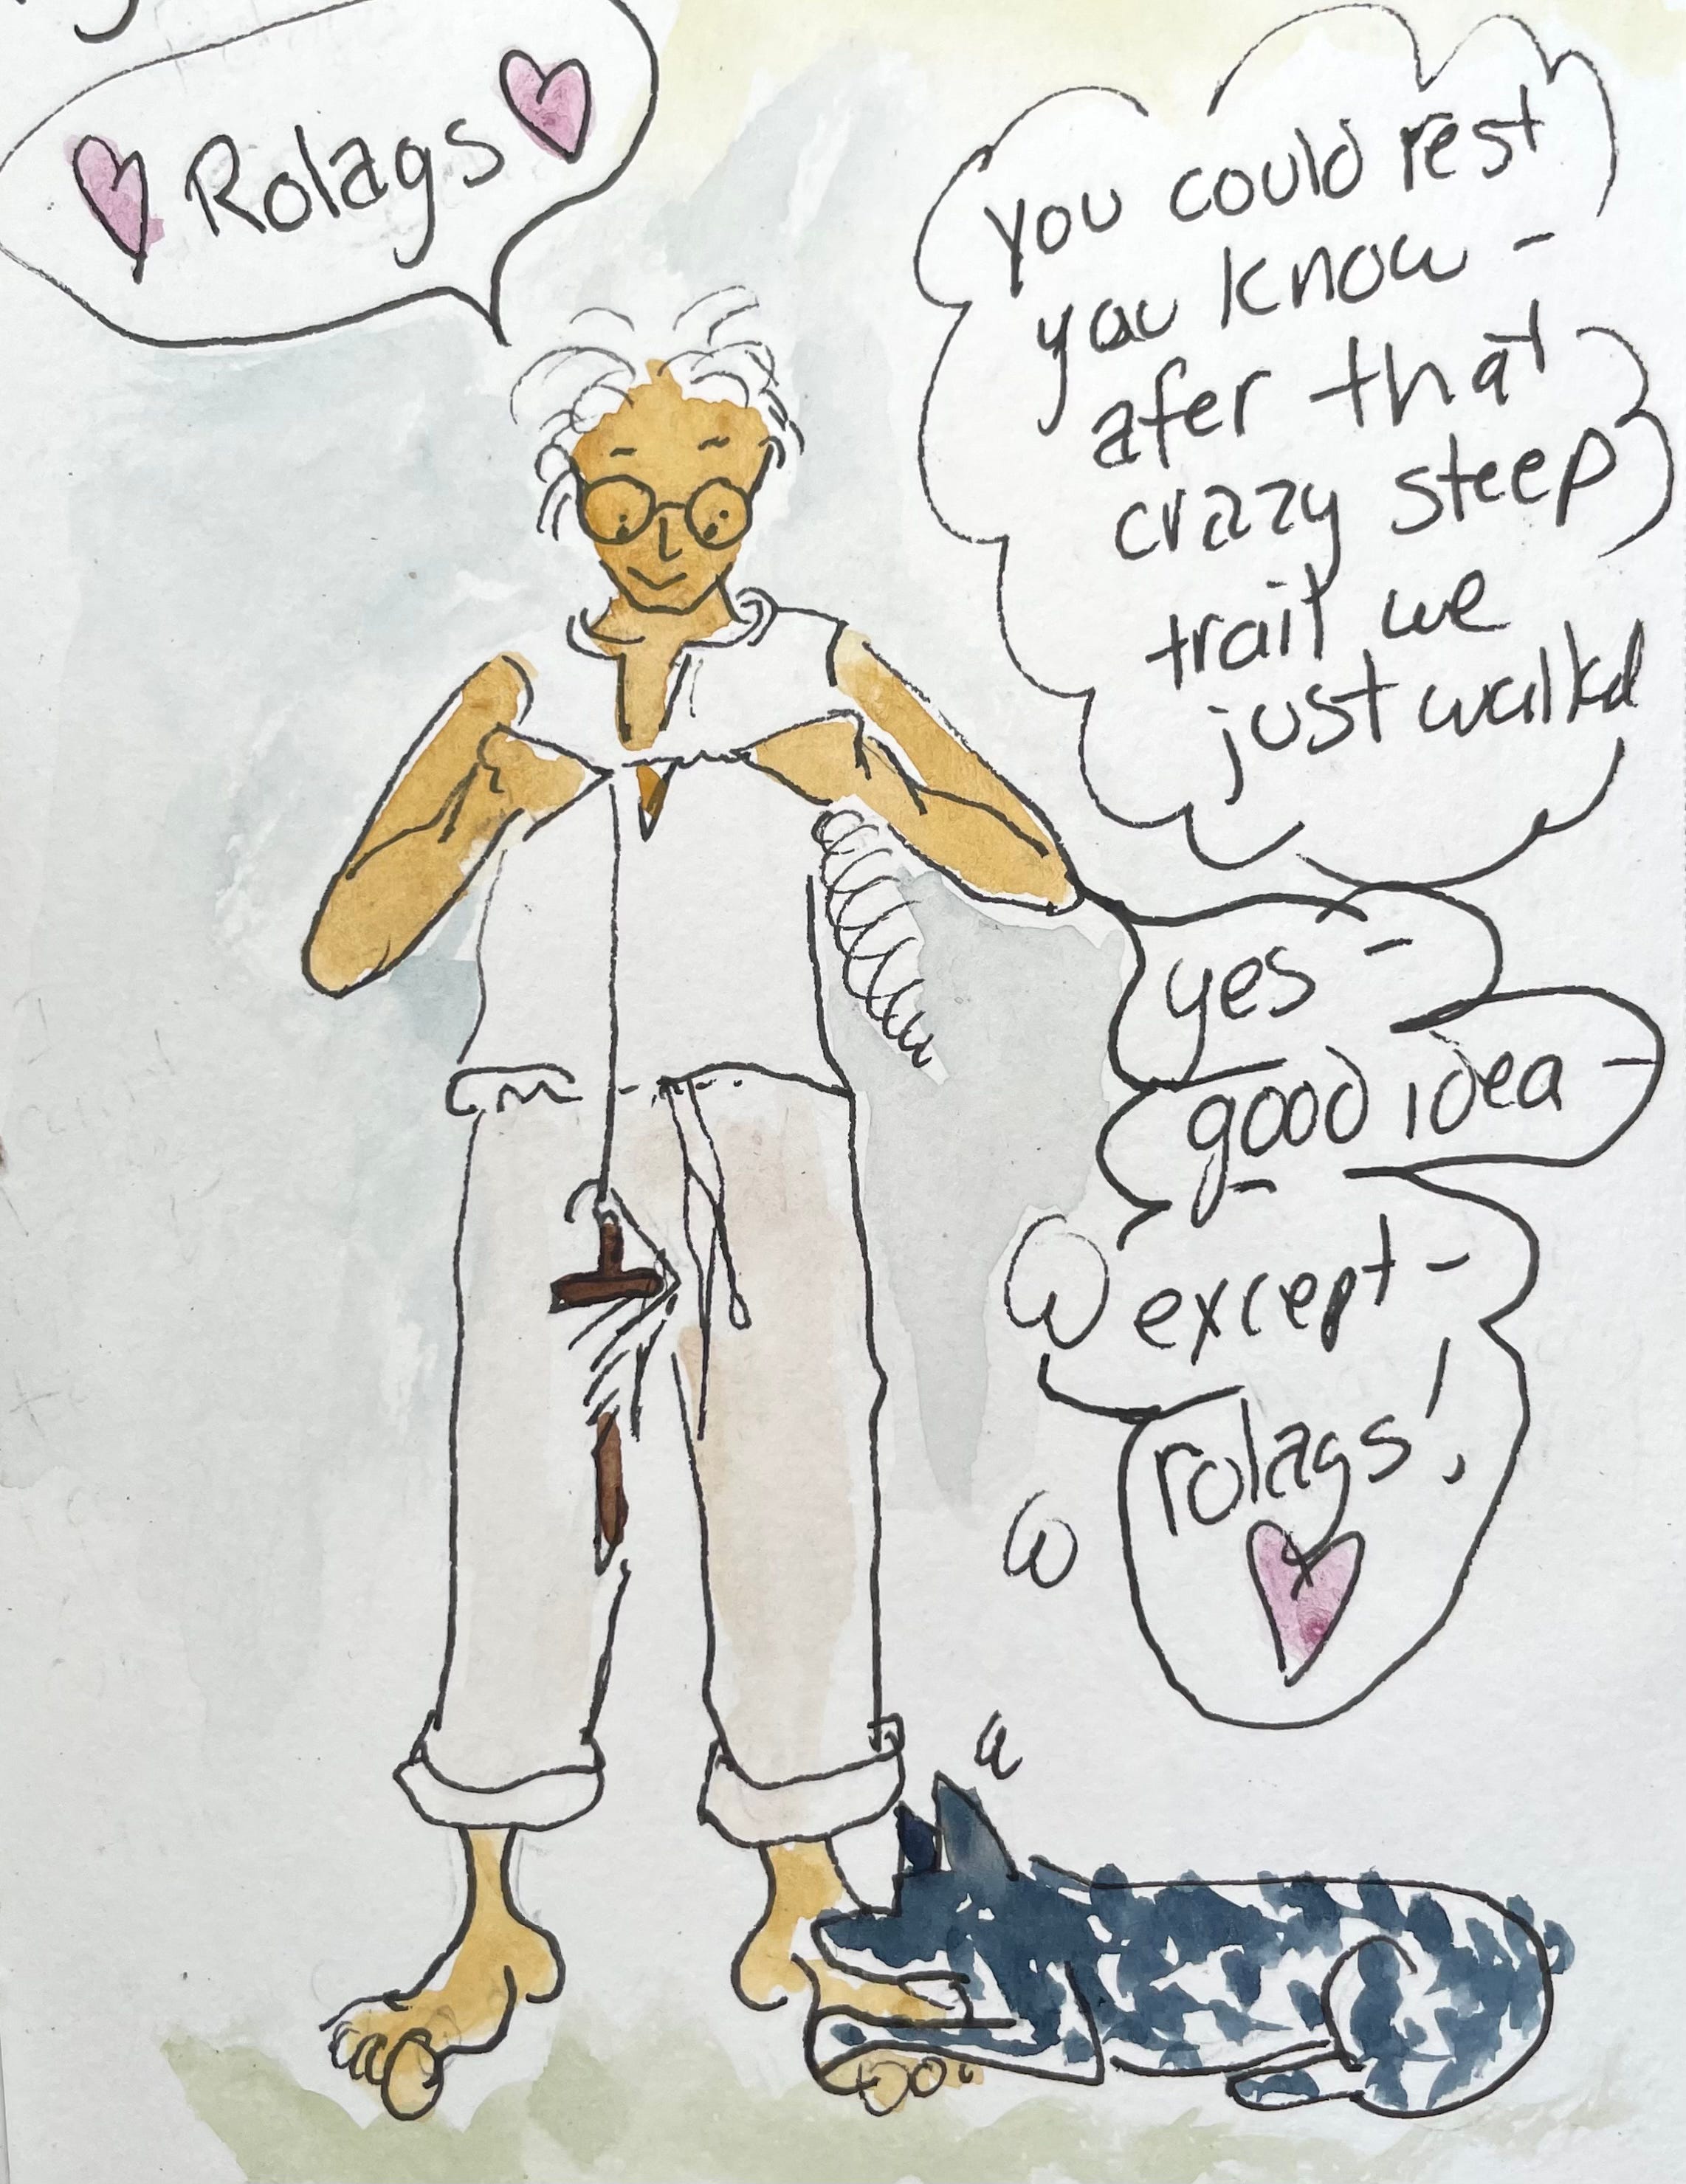 Rolags
you could rest
you know -
afer that
crazzy steep
trail we
just walkd
yes -
good idea -
except -
rolags!